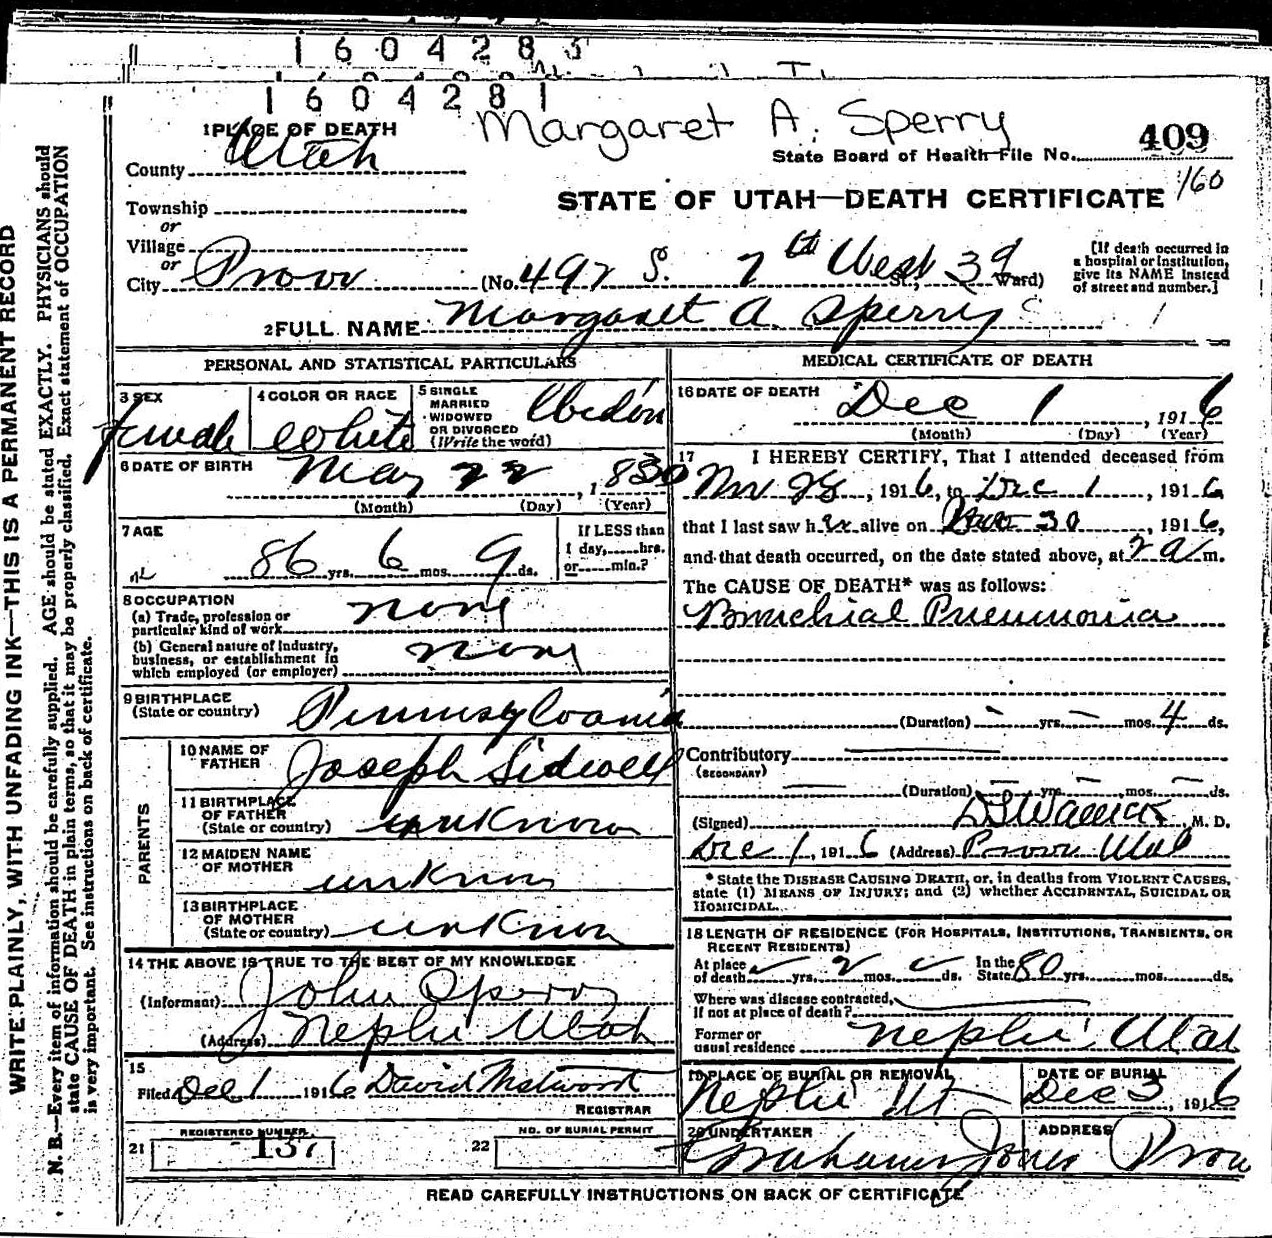 1604283
1604281
Margaret A. Sperry
1 PLACE OF DEATH
County Utah
State Board of Health File No. 409
160
STATE OF UTAH—DEATH CERTIFICATE
Township
or
Village
or
City Provo (No. 497 S. 7th West St., 3d Ward)
[If death occurred in a hospital or institution, give its NAME instead of street and number.]
2 FULL NAME Margaret A. Sperry
PERSONAL AND STATISTICAL PARTICULARS
3 SEX female
4 COLOR OR RACE White
5 SINGLE MARRIED WIDOWED OR DIVORCED (Write the word)
6 DATE OF BIRTH May 22, 1830
(Month) (Day) (Year)
7 AGE 86 yrs. 6 mos. 9 ds.
If LESS than 1 day,......hrs. or......min.?
8 OCCUPATION
(a) Trade, profession or particular kind of work none
(b) General nature of Industry, business, or establishment in which employed (or employer) none
9 BIRTHPLACE (State or country) Pennsylvania
PARENTS
10 NAME OF FATHER Joseph Sidwell
11 BIRTHPLACE OF FATHER (State or country) unknown
12 MAIDEN NAME OF MOTHER unknown
13 BIRTHPLACE OF MOTHER (State or country) unknown
14 THE ABOVE IS TRUE TO THE BEST OF MY KNOWLEDGE
(Informant) John Sperry
(Address) Nephi Utah
15
Filed Dec 1 1916 David
REGISTRAR
21 REGISTERED NUMBER 137
22 NO. OF BURIAL PERMIT
MEDICAL CERTIFICATE OF DEATH
16 DATE OF DEATH Dec 1, 1916
(Month) (Day) (Year)
17 I HEREBY CERTIFY, That I attended deceased from
Nov 28, 1916, to Dec 1, 1916
that I last saw her alive on Nov 30, 1916,
and that death occurred, on the date stated above, at 2 a m.
The CAUSE OF DEATH* was as follows:
Bronchial Pneumonia
(Duration) – yrs. – mos. 4 ds.
Contributory
(SECONDARY)
(Duration) – yrs. – mos. – ds.
(Signed) , M. D.
Dec 1, 1916 (Address) Provo Utah
* State the DISEASE CAUSING DEATH, or, in deaths from VIOLENT CAUSES, state (1) MEANS OF INJURY; and (2) whether ACCIDENTAL, SUICIDAL OR HOMICIDAL.
18 LENGTH OF RESIDENCE (FOR HOSPITALS, INSTITUTIONS, TRANSIENTS, OR RECENT RESIDENTS)
At place of death yrs. 2 mos. ds. In the State 80 yrs. mos. ds.
Where was disease contracted, if not at place of death?
Former or usual residence Nephi Utah
19 PLACE OF BURIAL OR REMOVAL Nephi Ut
DATE OF BURIAL Dec 3, 1916
20 UNDERTAKER Jones
ADDRESS Provo
READ CAREFULLY INSTRUCTIONS ON BACK OF CERTIFICATE
WRITE PLAINLY, WITH UNFADING INK—THIS IS A PERMANENT RECORD
N. B.—Every item of information should be carefully supplied. AGE should be stated EXACTLY. PHYSICIANS should
state CAUSE OF DEATH in plain terms, so that it may be properly classified. Exact statement of OCCUPATION
is very important. See instructions on back of certificate.